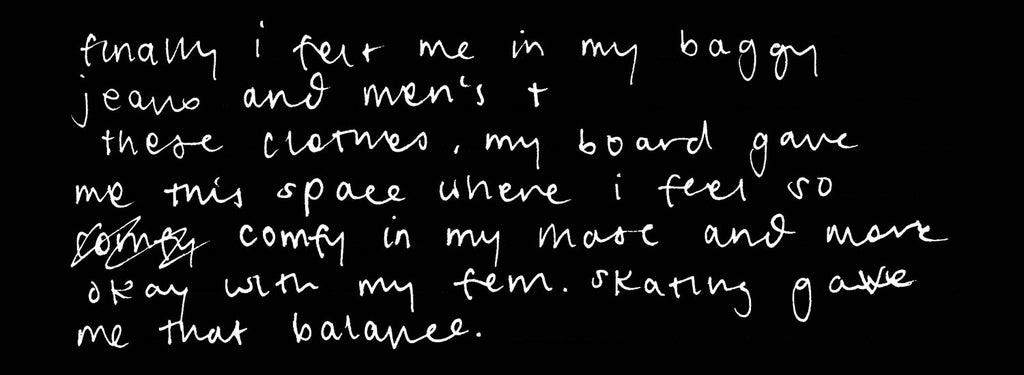 finally i felt me in my baggy
jeans and men's t
these clothes, my board gave
me this space where i feel so
comfy comfy in my masc and more
okay with my fem. skating gave
me that balance.